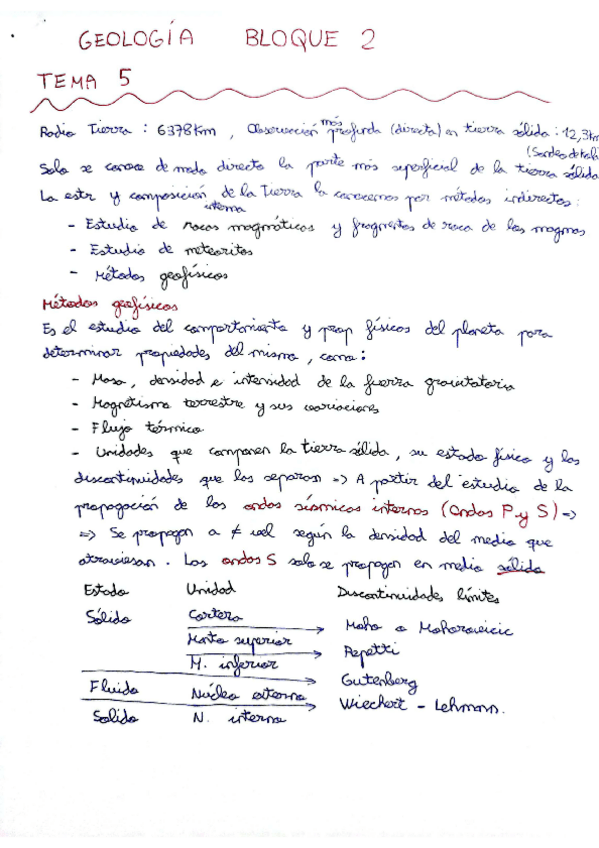 GEOLOGÍA BLOQUE 2
TEMA 5
Radio Tierra : 6378Km , Observación más profunda (directa) en tierra sólida : 12,3k
(Sondeo de Kola
Solo se conoce de modo directo la parte más superficial de la tierra sólida
La estr y composición interna de la Tierra la conocemos por métodos indirectos:
- Estudio de rocas magmáticas y fragmentos de roca de los magmas
- Estudio de meteoritos
- Métodos geofísicos
Métodos geofísicos
Es el estudio del comportamiento y prop físicas del planeta para
determinar propiedades del mismo , como :
- Masa , densidad e intensidad de la fuerza gravitatoria
- Magnetismo terrestre y sus variaciones
- Flujo térmico
- Unidades que componen la tierra sólida , su estado físico y las
discontinuidades que las separan => A partir del estudio de la
propagación de las ondas sísmicas internas (Ondas P y S) =>
=> Se propagan a ≠ vel según la densidad del medio que
atraviesan . Las ondas S solo se propagan en medio sólido
Estado Unidad Discontinuidades límites
Sólido Corteza
Moho o Mohorovicic
Manto superior
Repetti
M. inferior
Gutenberg
Fluido Núcleo externo
Wiechert - Lehmann.
Solido N. interno